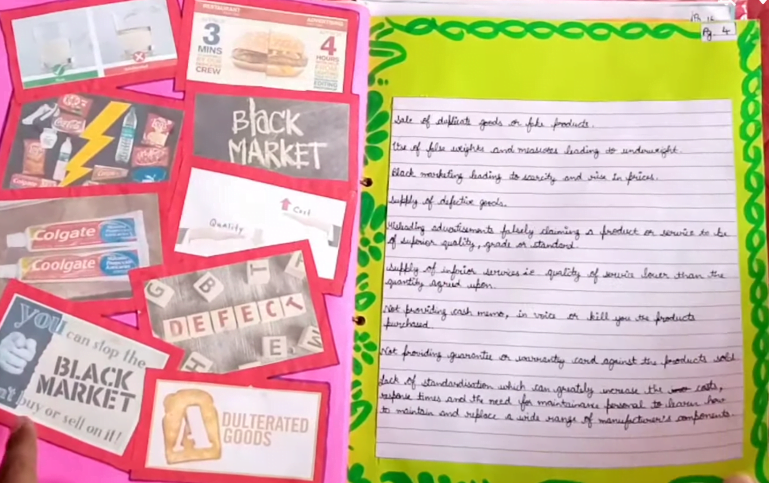 RESTAURANT
ADVERTISING
3
MINS
CREW
4
HOURS
BLACK
MARKET
Cost
Quality
Colgate
Coolgate
DEFECT
G
B
T
E
you can stop the
BLACK
MARKET
buy or sell on it!
ADULTERATED
GOODS
Pg. 4
Sale of duplicate goods or fake products.
Use of false weights and measures leading to underweight.
Black marketing leading to scarcity and rise in prices.
Supply of defective goods.
Misleading advertisements falsely claiming a product or service to be
of superior quality, grade or standard.
Supply of inferior services ie quality of service lower than the
quantity agreed upon.
Not providing cash memo, in voice or bill you the products
purchased.
Not providing guarantee or warrenty card against the products sold
Lack of standardisation which can greately increase the costs,
response times and the need for maintainance personal to learn how
to maintain and replace a wide range of manufacturer's components.